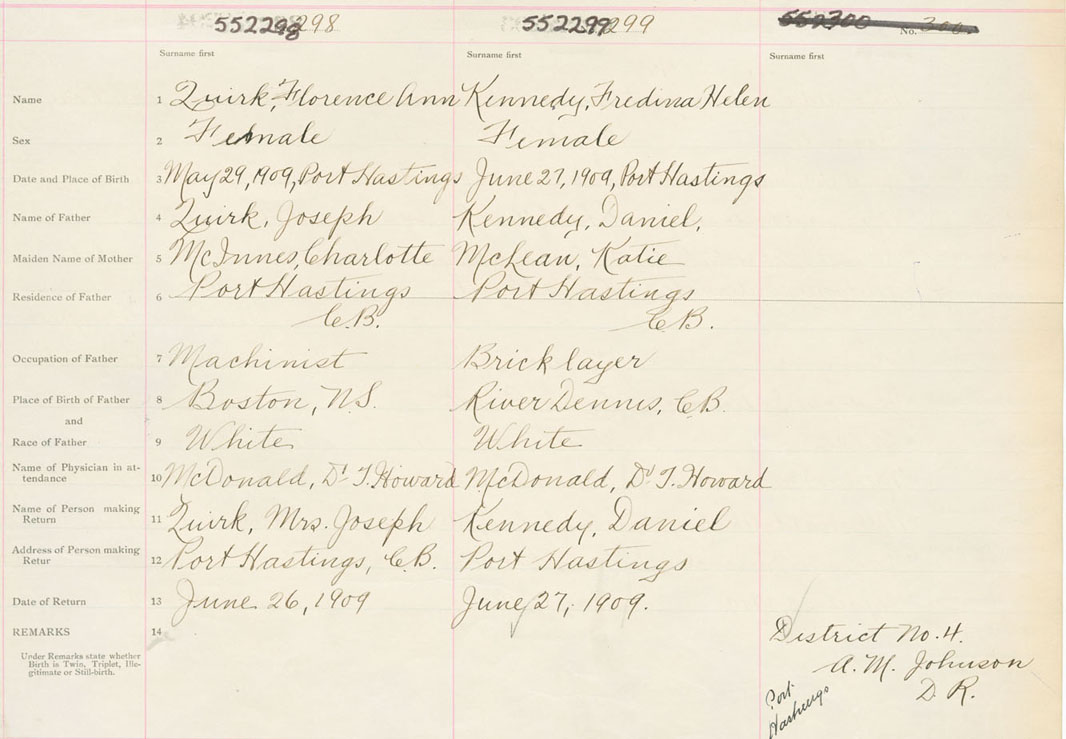 552298 298 552299 299 552300 No. 300
Surname first Surname first Surname first
Name 1 Quirk, Florence Ann Kennedy, Fredina Helen
Sex 2 Female Female
Date and Place of Birth 3 May 29, 1909, Port Hastings June 27, 1909, Port Hastings
Name of Father 4 Quirk, Joseph Kennedy, Daniel,
Maiden Name of Mother 5 McInnes, Charlotte McLean, Katie
Residence of Father 6 Port Hastings Port Hastings
C.B. C.B.
Occupation of Father 7 Machinist Bricklayer
Place of Birth of Father 8 Boston, N.S. River Dennis, C.B.
and
Race of Father 9 White White
Name of Physician in at-
tendance 10 McDonald, Dr T. Howard McDonald, Dr T. Howard
Name of Person making
Return 11 Quirk, Mrs. Joseph Kennedy, Daniel
Address of Person making
Retur 12 Port Hastings, C.B. Port Hastings
Date of Return 13 June 26, 1909 June 27, 1909.
REMARKS 14
Under Remarks state whether
Birth is Twin, Triplet, Ille-
gitimate or Still-birth.
District No. 4.
A. M. Johnson
D. R.
Port
Hastings